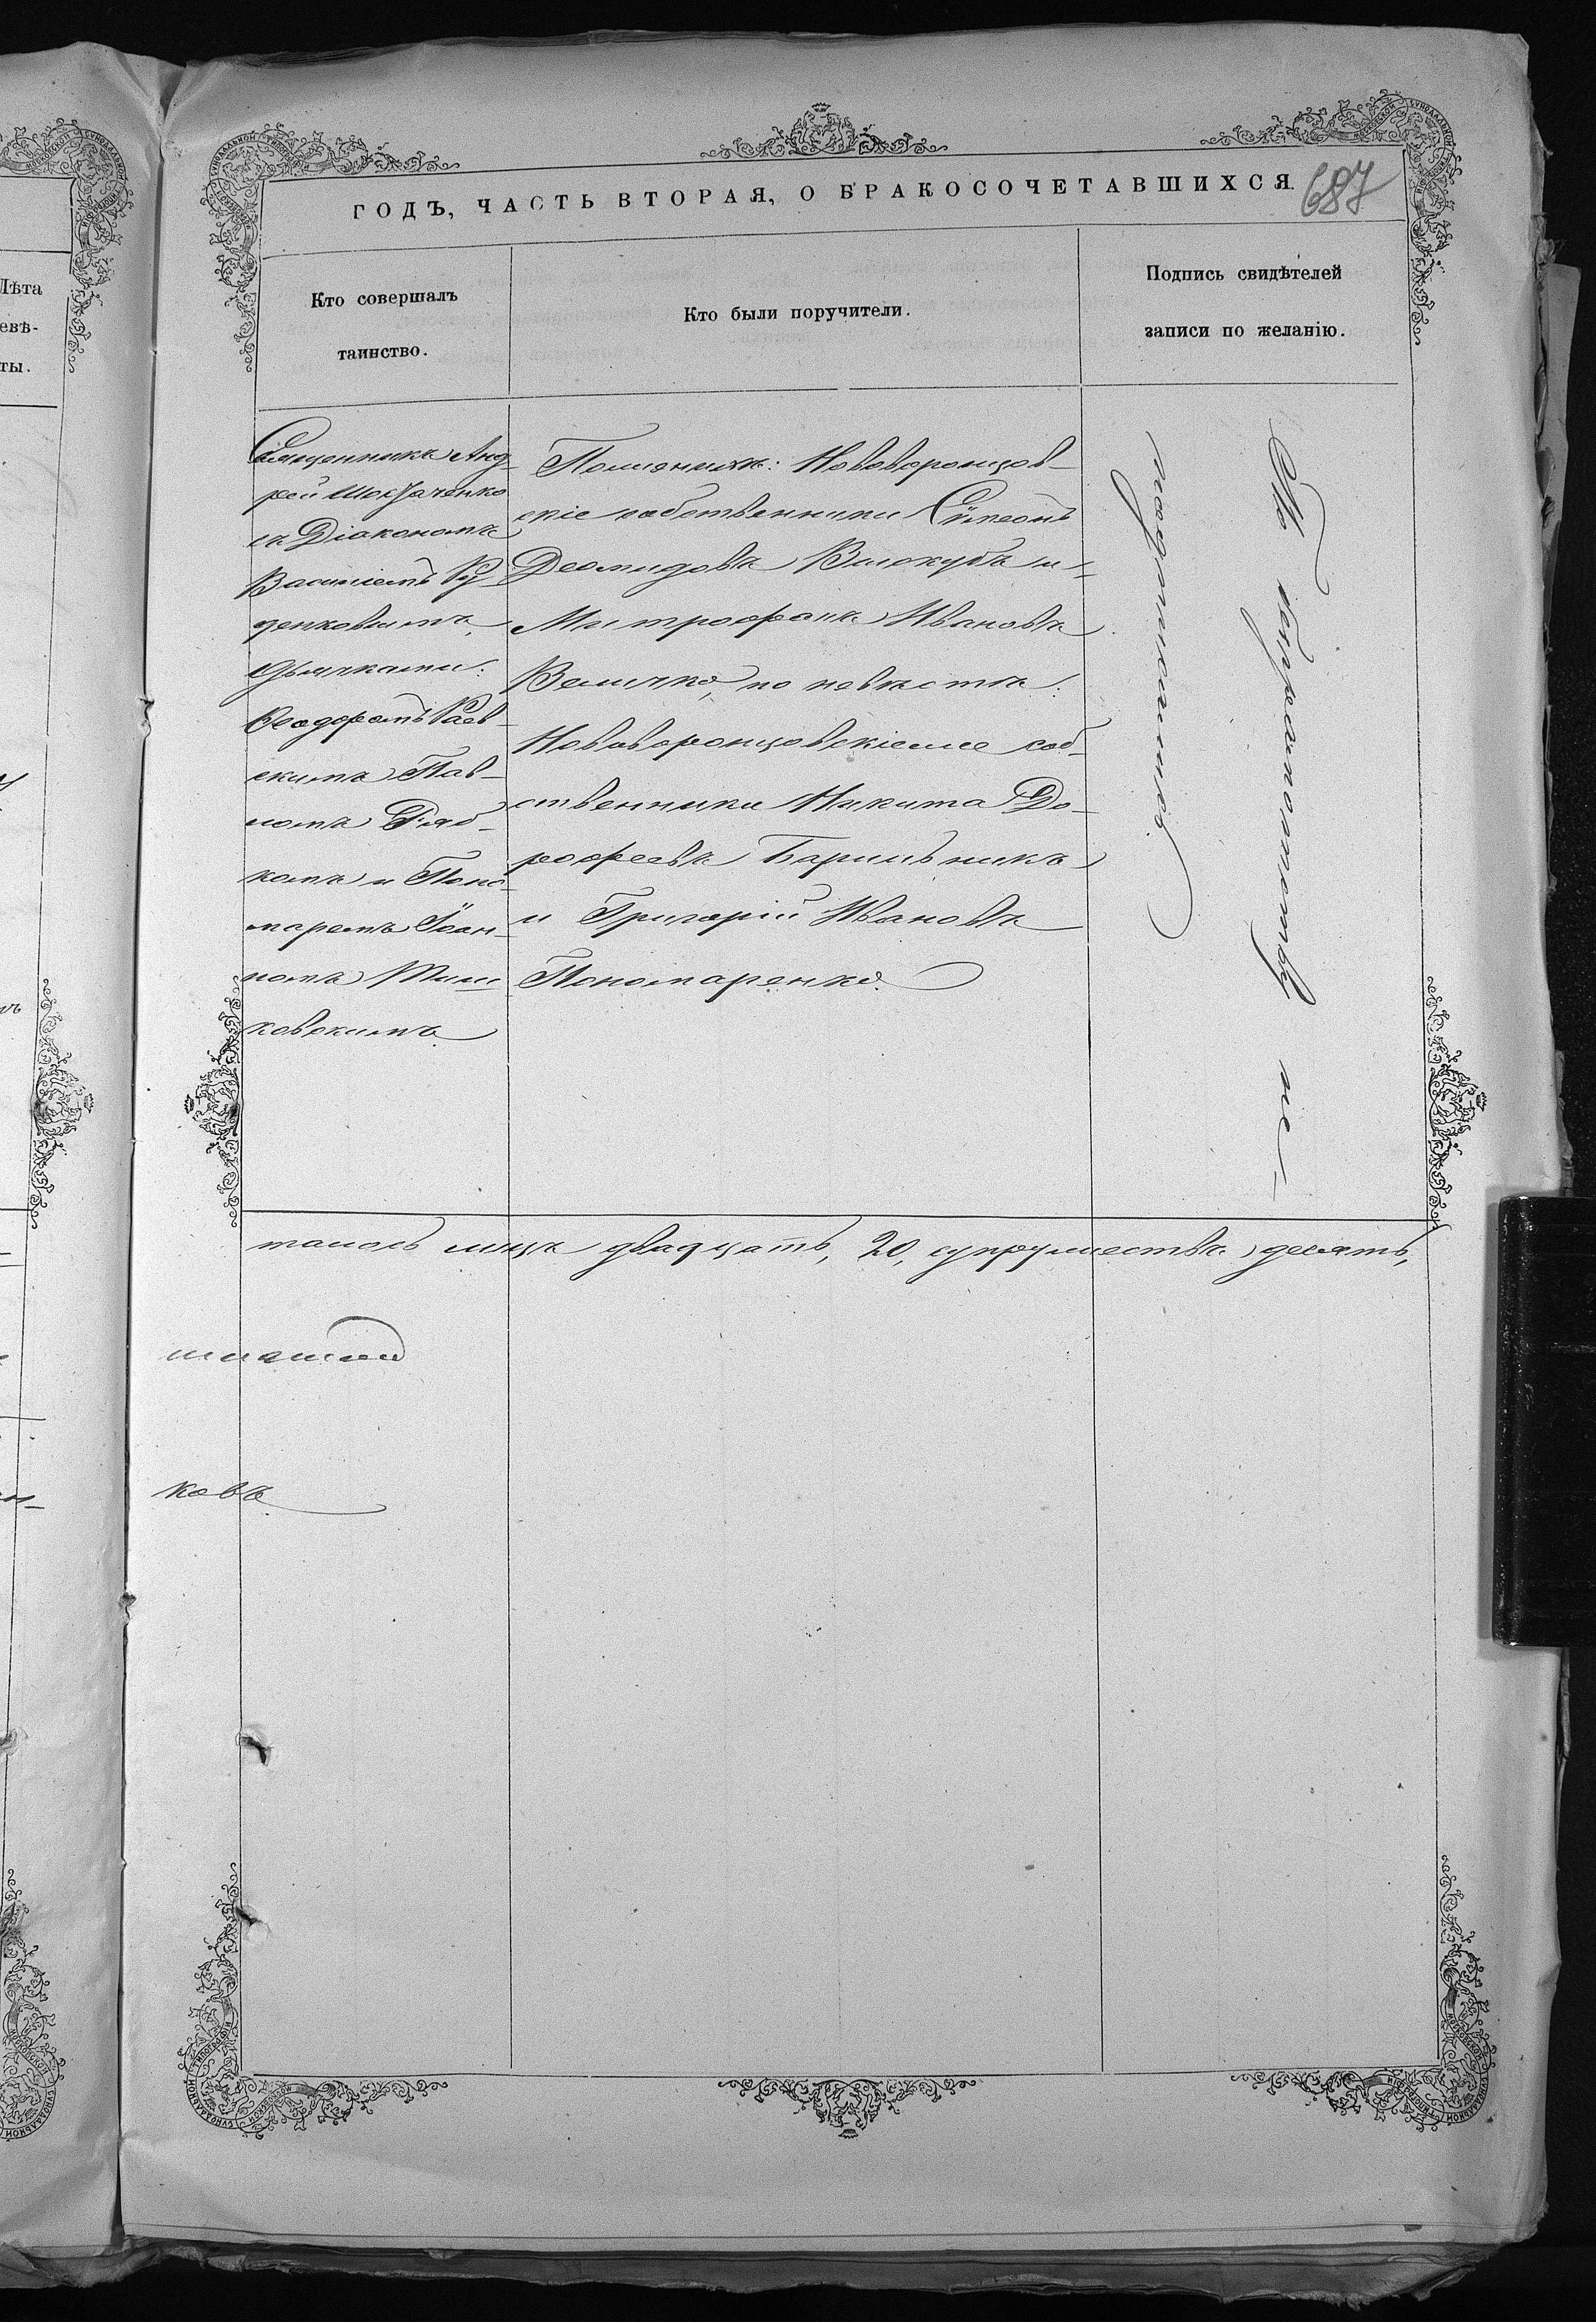 ГОДЪ, ЧАСТЬ ВТОРАЯ, О БРАКОСОЧЕТАВШИХСЯ.
687
Кто совершалъ
таинство.
Кто были поручители.
Подпись свидѣтелей
записи по желанію.
Священникъ Анд-
рей
съ Діакономъ
Василіемъ Ру-
денковымъ,
дьячками:
Ѳеодоромъ Раев-
скимъ Пав-
ломъ Гляб-
комъ и Поно-
маремъ Іоан-
номъ
ковскимъ.
По женихѣ: Нововоронцов-
скіе собственники Сѵмеонъ
Деомидовъ Волокубъ и
Митрофанъ Ивановъ
Величко, по невѣстѣ:
Нововоронцовскіеже соб-
ственники Никита До-
рофеевъ Барильникъ
и Григорій Ивановъ
Пономаренко.
По безграмотству не-
подписались.
талось лицъ двадцать, 20, супружествъ десять,
ковъ
Лѣта
евѣ-
ты.